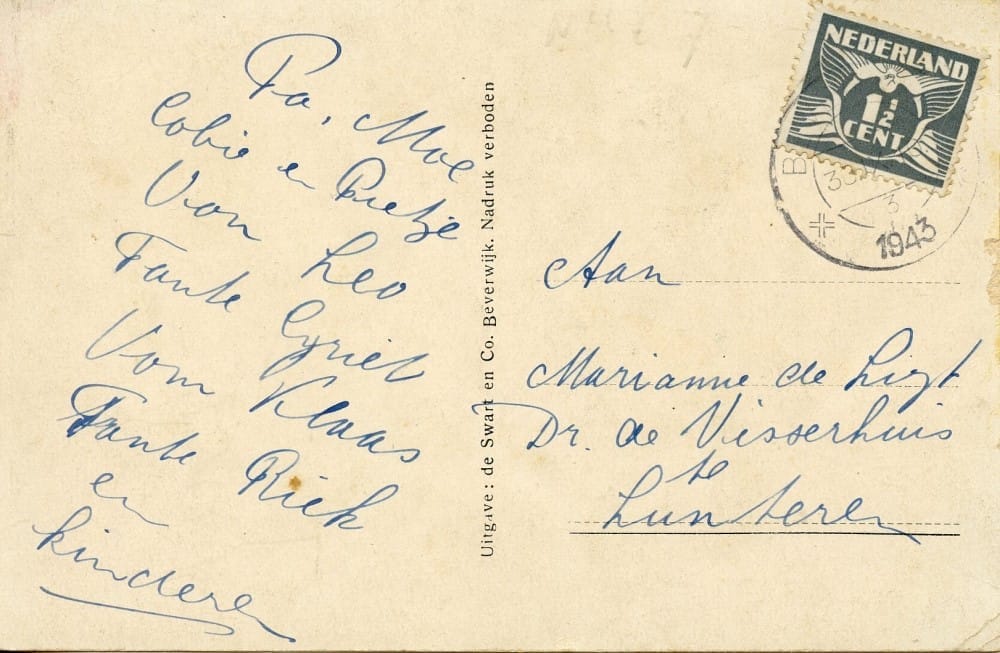 Pa, Moe
Cobie en Pietje
Vom Leo
Tante Griet
Vom Klaas
Tante Riek
en
kinderen
Uitgave: de Swart en Co. Beverwijk. Nadruk verboden
NEDERLAND
1½
CENT
3
1943
Aan
Marianne de Ligt
Dr. de Visserhuis
te
Lunteren